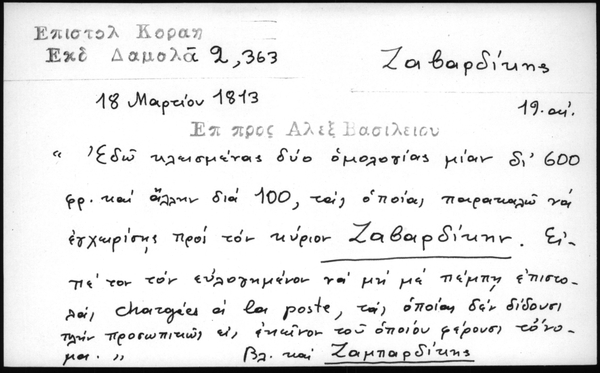 Επιστολ Κοραη
Εκδ Δαμαλᾶ 2,363
Ζαβαρδίκης
18 Μαρτίου 1813
19. αἰ.
Επ προς Αλεξ Βασιλειου
"Ἐδῶ κλεισμένας δύο ὁμολογίας μίαν δι' 600
φρ. καὶ ἄλλην διά 100, τάς ὁποίας παρακαλῶ νά
ἐγχειρίσῃς πρός τόν κύριον Ζαβαρδίκην. Εἰ-
πέ τον τόν εὐλογημένον νά μή μέ πέμπῃ ἐπιστο-
λάς chargées à la poste, τάς ὁποίας δέν δίδουσι
πλήν προσωπικῶς εἰς ἐκεῖνον τοῦ ὁποίου φέρουσι τό ὄνο-
μα."
Βλ. καί Ζαμπαρδίκης